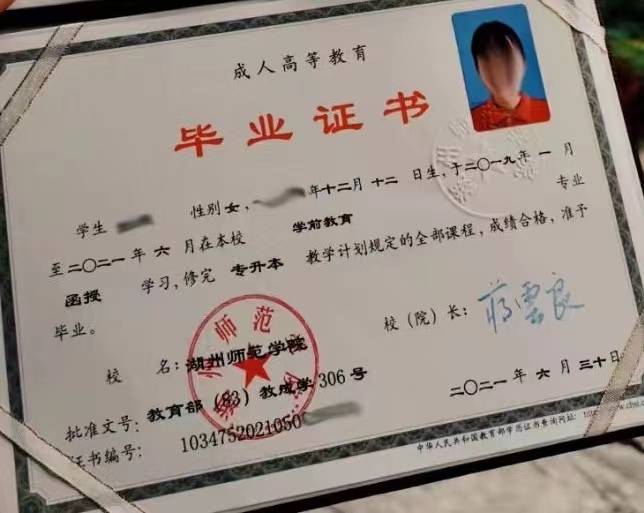 成人高等教育
毕业证书
学生 性别女, 年十二月十二日生,于二〇一九年一月
至二〇二一年六月在本校 学前教育 专业
函授 学习,修完 专升本 教学计划规定的全部课程,成绩合格,准予
毕业。
校 名:湖州师范学院
校(院)长:蒋云良
批准文号:教育部(83)教成学306号
证书编号:1034752021050
二〇二一年六月三十日
中华人民共和国教育部学历证书查询网址: